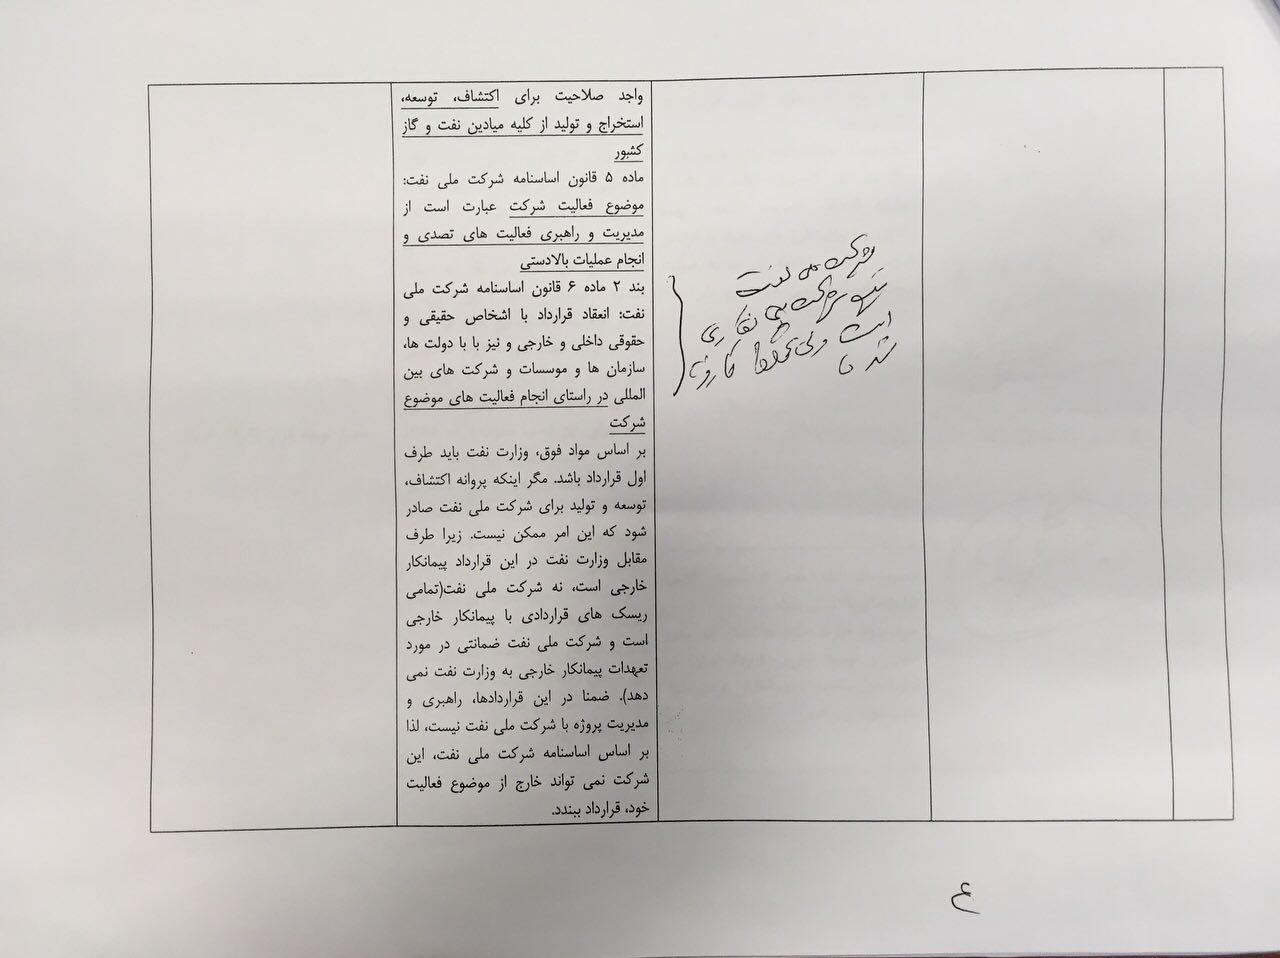 واجد صلاحیت برای اکتشاف، توسعه،
استخراج و تولید از کلیه میادین نفت و گاز
کشور
ماده ۵ قانون اساسنامه شرکت ملی نفت:
موضوع فعالیت شرکت عبارت است از
مدیریت و راهبری فعالیت های تصدی و
انجام عملیات بالادستی
بند ۲ ماده ۶ قانون اساسنامه شرکت ملی
نفت: انعقاد قرارداد با اشخاص حقیقی و
حقوقی داخلی و خارجی و نیز با با دولت ها،
سازمان ها و موسسات و شرکت های بین
المللی در راستای انجام فعالیت های موضوع
شرکت
بر اساس مواد فوق، وزارت نفت باید طرف
اول قرارداد باشد. مگر اینکه پروانه اکتشاف،
توسعه و تولید برای شرکت ملی نفت صادر
شود که این امر ممکن نیست. زیرا طرف
مقابل وزارت نفت در این قرارداد پیمانکار
خارجی است، نه شرکت ملی نفت(تمامی
ریسک های قراردادی با پیمانکار خارجی
است و شرکت ملی نفت ضمانتی در مورد
تعهدات پیمانکار خارجی به وزارت نفت نمی
دهد). ضمنا در این قراردادها، راهبری و
مدیریت پروژه با شرکت ملی نفت نیست، لذا
بر اساس اساسنامه شرکت ملی نفت، این
شرکت نمی تواند خارج از موضوع فعالیت
خود، قرارداد ببندد.
شرکت ملی نفت
است ولی عملا